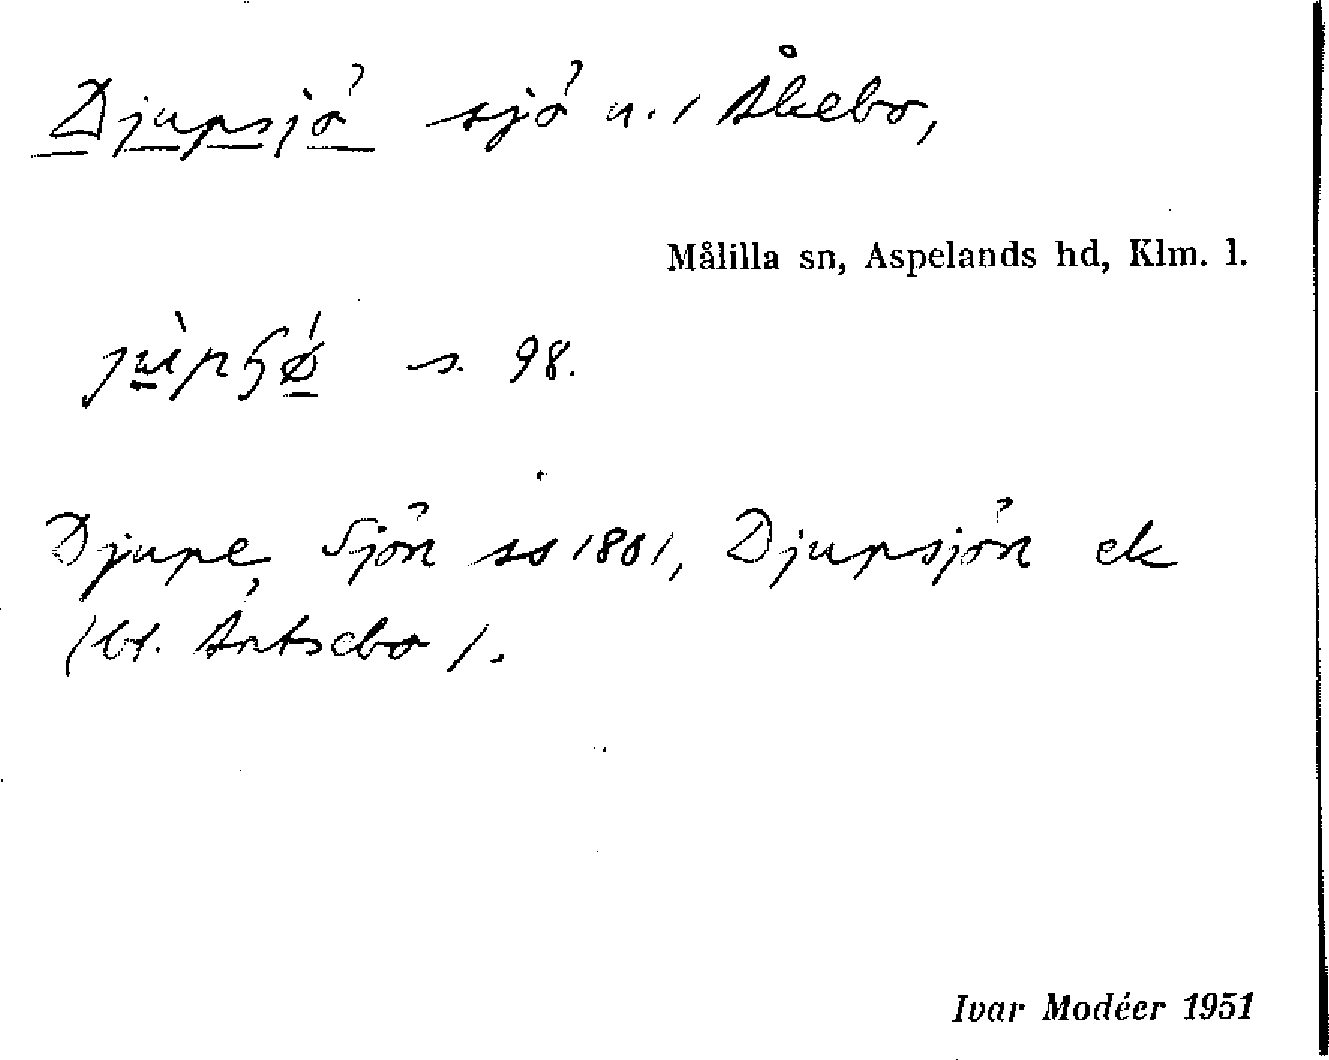 Djupsjö sjö u. / Åkebo,
Målilla sn, Aspelands hd, Klm. l.
s. 98.
Djupe Sjön ss 1801, Djupsjön ek
(bl. Äntsebo).
Ivar Modéer 1951